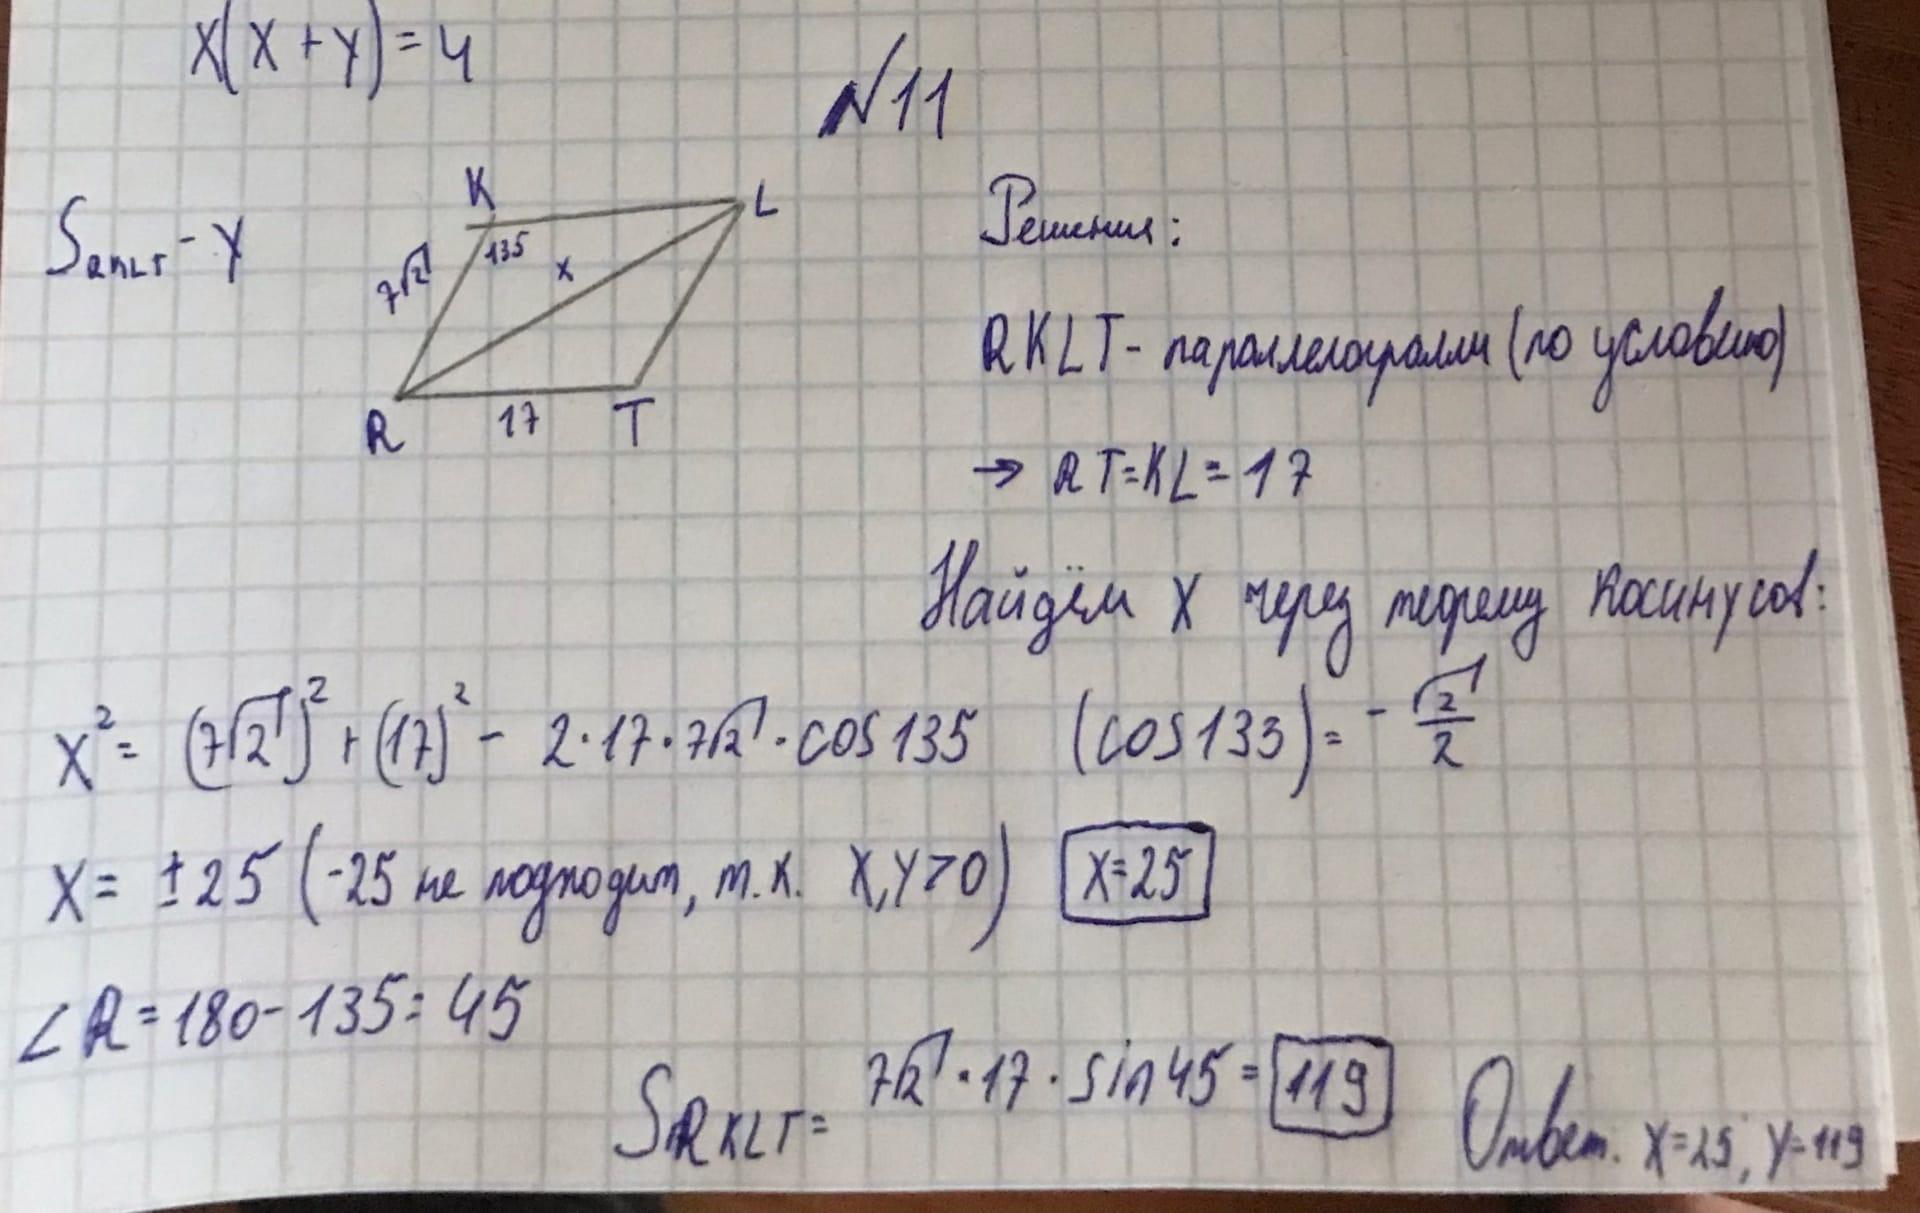 x(x+y)=4
№11
S RKLT - y
K
L
135
x
7√2
R
17
T
Решения:
RKLT - параллелограмм (по условию)
→ RT=KL=17
Найдём x через теорему косинусов:
x² = (7√2)² + (17)² - 2·17·7√2·cos135 (cos133) = -√2/2
x = ±25 (-25 не подходит, т.к. x,y>0) x=25
∠R=180-135=45
S RKLT = 7√2·17·sin45=119
Ответ. x=25, y=119